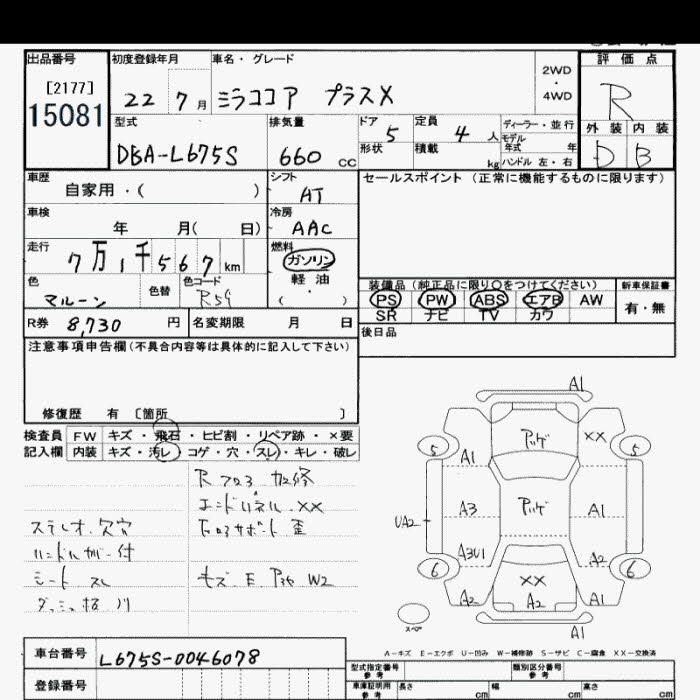 出品番号 初度登録年月 車名・グレード 2WD・4WD 評価点
[2177]
15081
22 7月 ミラココア プラスX R
型式 排気量 ドア 定員 ディーラー・並行 外装 内装
モデル年式 年
DBA-L675S 660 cc 5 4人 D B
形状 積載 kg ハンドル 左・右
車歴 シフト セールスポイント (正常に機能するものに限ります)
自家用・( ) AT
車検 冷房
年 月( 日) AAC
走行 燃料
7万1千567km ガソリン
軽油
色 色替 色コード ( )
マルーン R59
装備品 (純正品に限り○をつけてください) 新車保証書
PS PW ABS エアB AW 有・無
SR ナビ TV カワ
R券 8,730 円 名変期限 月 日
後日品
注意事項申告欄(不具合内容等は具体的に記入して下さい)
修復歴 有 〔箇所 〕
検査員 FW キズ・飛石・ヒビ割・リペア跡・×要
記入欄 内装 キズ・汚レ・コゲ・穴・スレ・キレ・破レ
Rフロア 加修
エンドパネル.XX
ステレオ.欠穴
ハンドルカバー付
シート スレ
A1
XX
5 5
A1
A3 A1
UA2
A3U1 A2
6 6
XX
A2 A2 A1
スペア
A1
A-キズ E-エクボ U-凹み W-補修跡 S-サビ C-腐食 XX-交換済
車台番号 L675S-0046078
登録番号
型式指定番号 参考 類別区分番号 参考
車庫証明用 参考 長さ cm 幅 cm 高さ cm